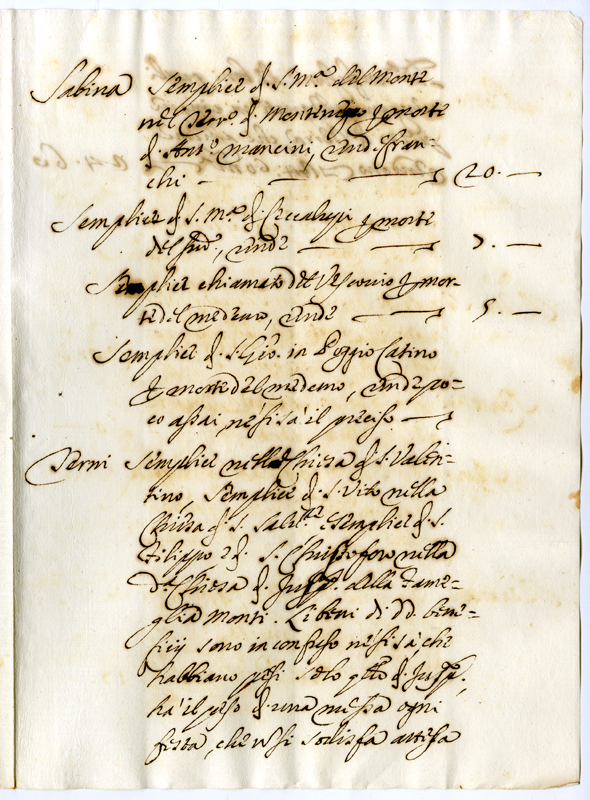 Sabina Semplice di S. Mª. del Monte
nel Terro. di Montenero p morte
di Anto. Mancini, rende fran-
chi — 20. —
Semplice di S. Mª. di p morte
del sud., rende — 7. —
Semplice chiamato del Vescovio p mor-
te del medemo, rende — 5. —
Semplice di S. Gio. in Poggio Catino
p morte del medemo, rende po-
co assai nè si sà il preciso —
Terni Semplice nella Chiesa di S. Valen-
tino, Semplice di S. Vito nella
Chiesa di S. Salre. e Semplice di S.
Filippo e di S. Christoforo nella
da. Chiesa di della Fame-
glia Monti. Li beni di dd. bene-
ficij sono in confuso nè si sà che
habbiano pesi solo qtto. di
hà il peso di una messa ogni
festa, che si sodisfa attesa